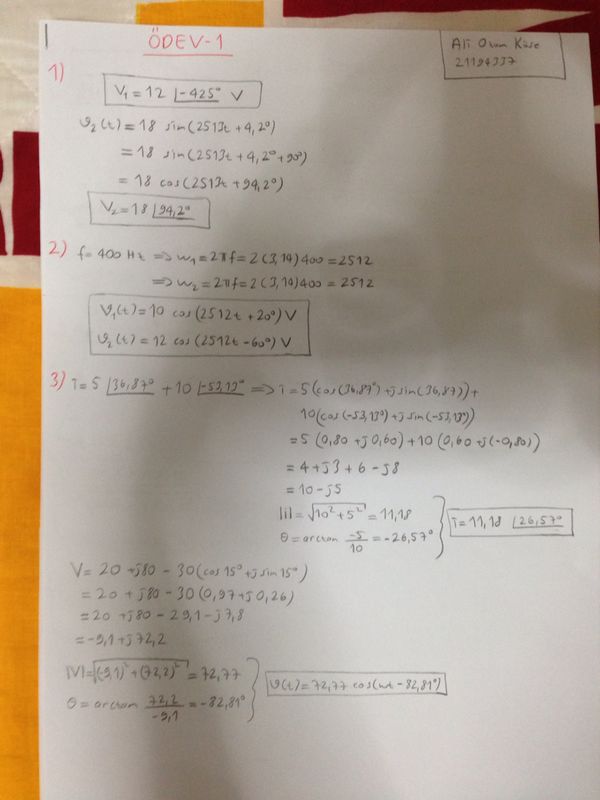 ÖDEV-1
Ali Ozan Köse
21194337
1)
V₁ = 12 ∠-425° V
v₂(t) = 18 sin(2513t + 4,2°)
= 18 sin(2513t + 4,2° + 90°)
= 18 cos(2513t + 94,2°)
V₂ = 18 ∠94,2°
2) f = 400 Hz ⇒ w₁ = 2πf = 2(3,14)400 = 2512
⇒ w₂ = 2πf = 2(3,14)400 = 2512
v₁(t) = 10 cos(2512t + 20°) V
v₂(t) = 12 cos(2512t - 60°) V
3) i = 5 ∠36,87° + 10 ∠-53,13° ⇒ i = 5(cos(36,87°) + jsin(36,87)) +
10(cos(-53,13°) + j sin(-53,13°))
= 5 (0,80 + j0,60) + 10 (0,60 + j(-0,80))
= 4 + j3 + 6 - j8
= 10 - j5
|i| = √10² + 5² = 11,18
θ = arctan -5/10 = -26,57°
i = 11,18 ∠26,57°
V = 20 + j80 - 30(cos15° + j sin15°)
= 20 + j80 - 30 (0,97 + j0,26)
= 20 + j80 - 29,1 - j7,8
= -9,1 + j72,2
|V| = √(-9,1)² + (72,2)² = 72,77
θ = arctan 72,2/-9,1 = -82,81°
v(t) = 72,77 cos(wt - 82,81°)